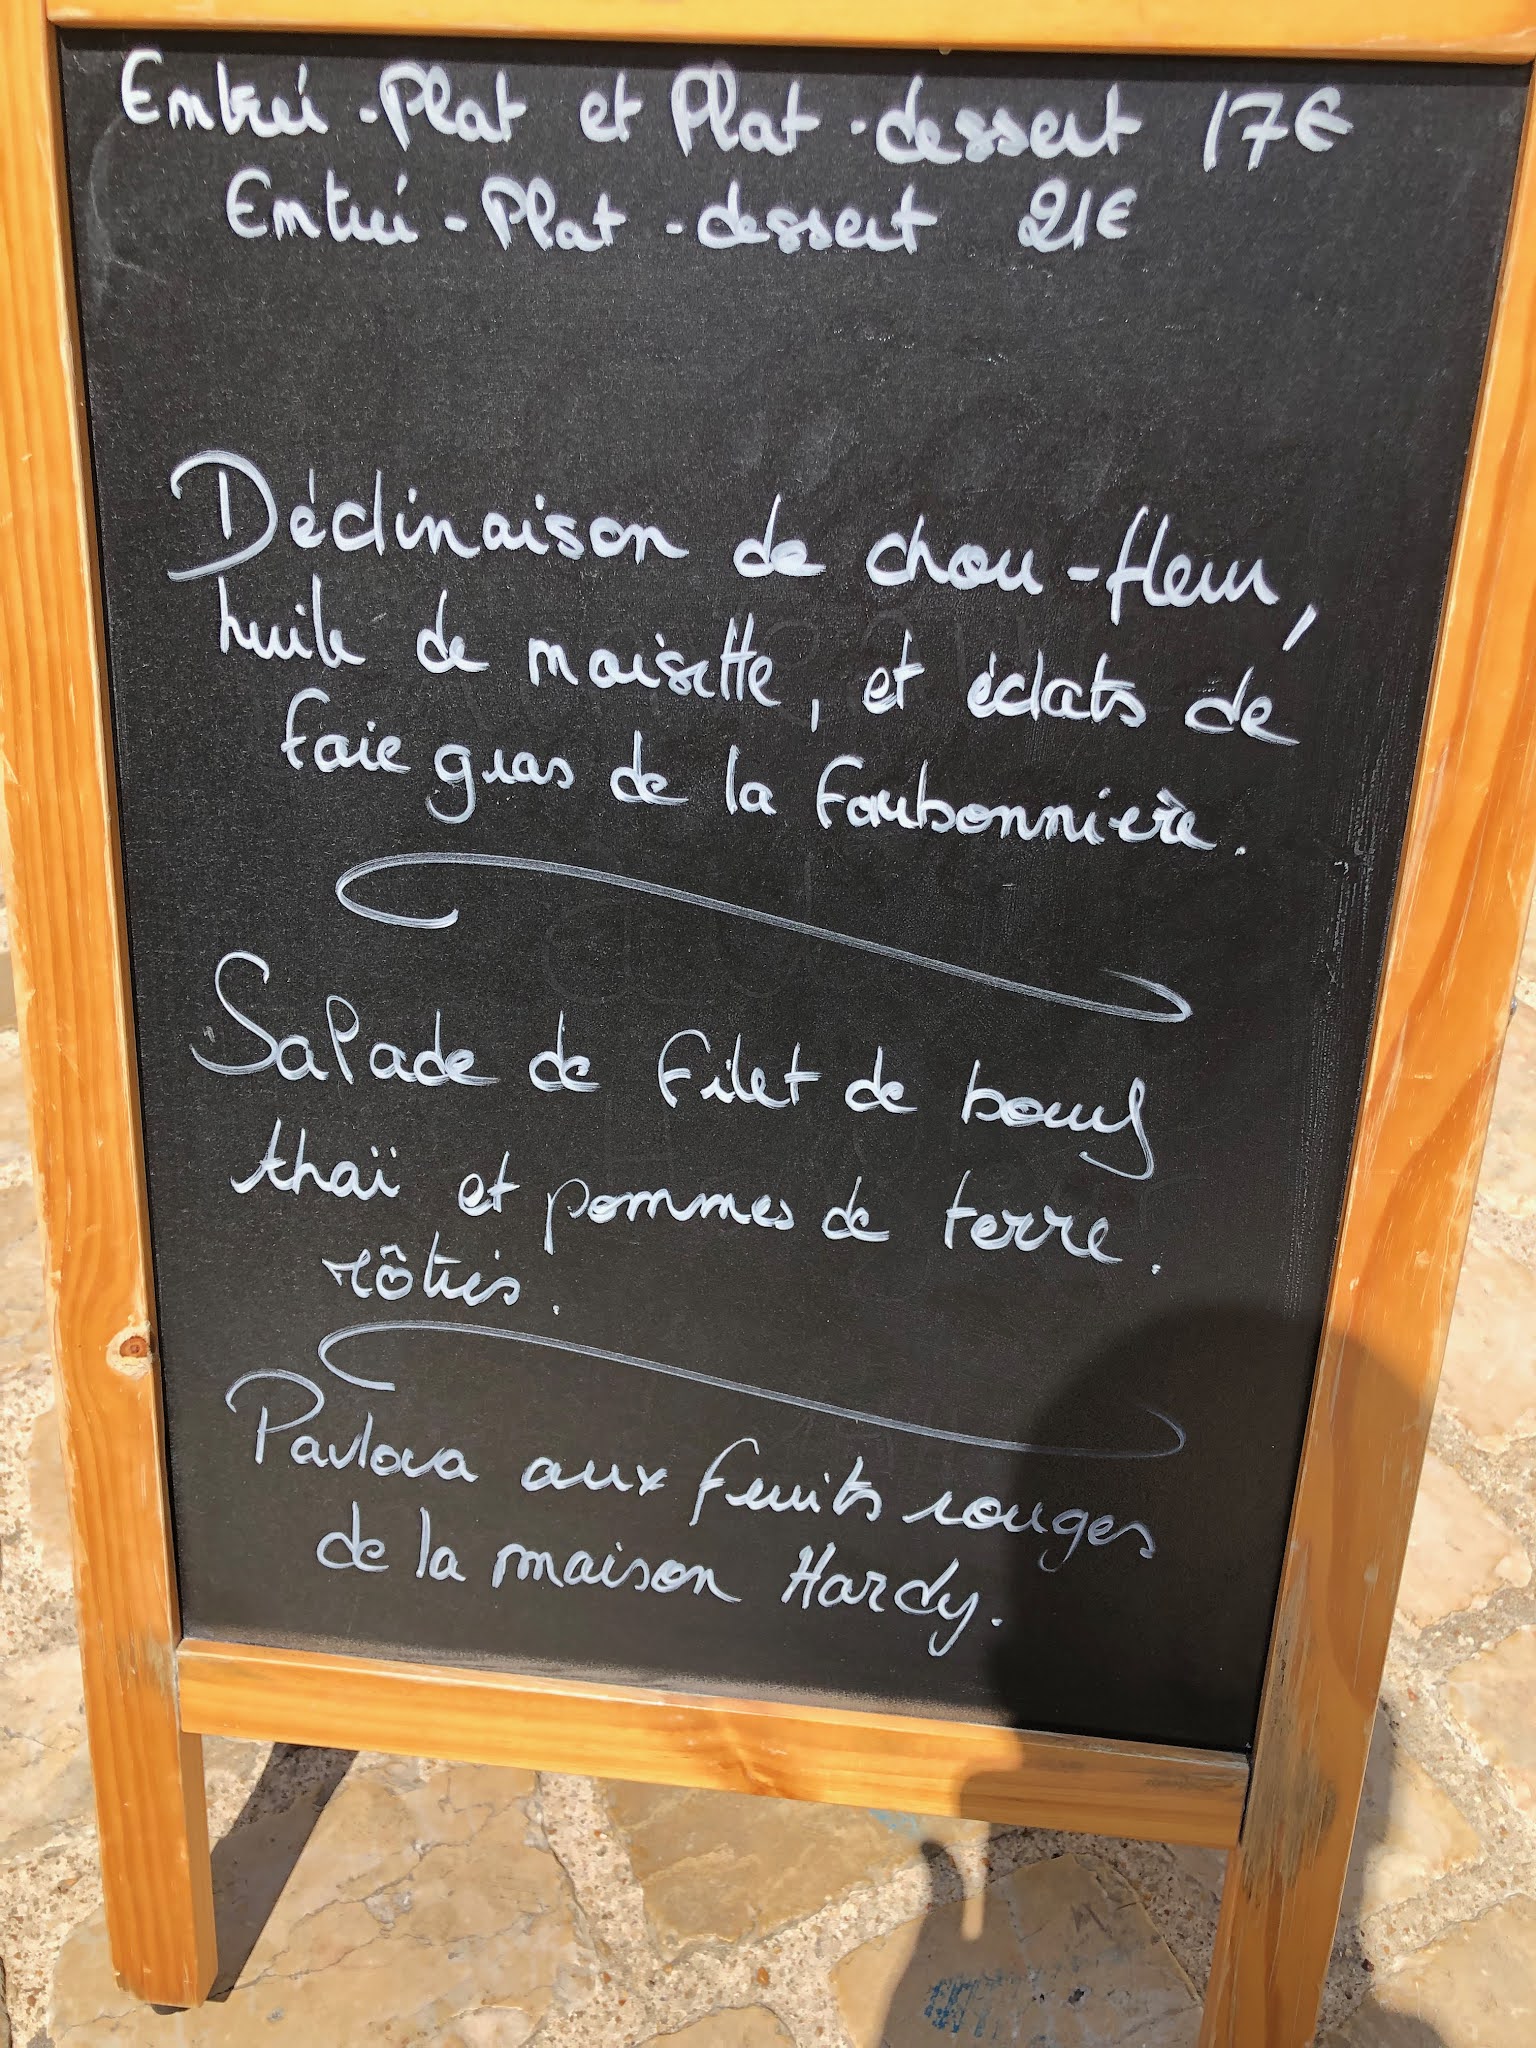 Entrée - Plat et Plat - dessert 17€
Entrée - Plat - dessert 21€
Déclinaison de chou-fleur,
huile de noisette, et éclats de
foie gras de la Faubonnière.
Salade de filet de boeuf
thaï et pommes de terre.
rôties.
Pavlova aux fruits rouges
de la maison Hardy.